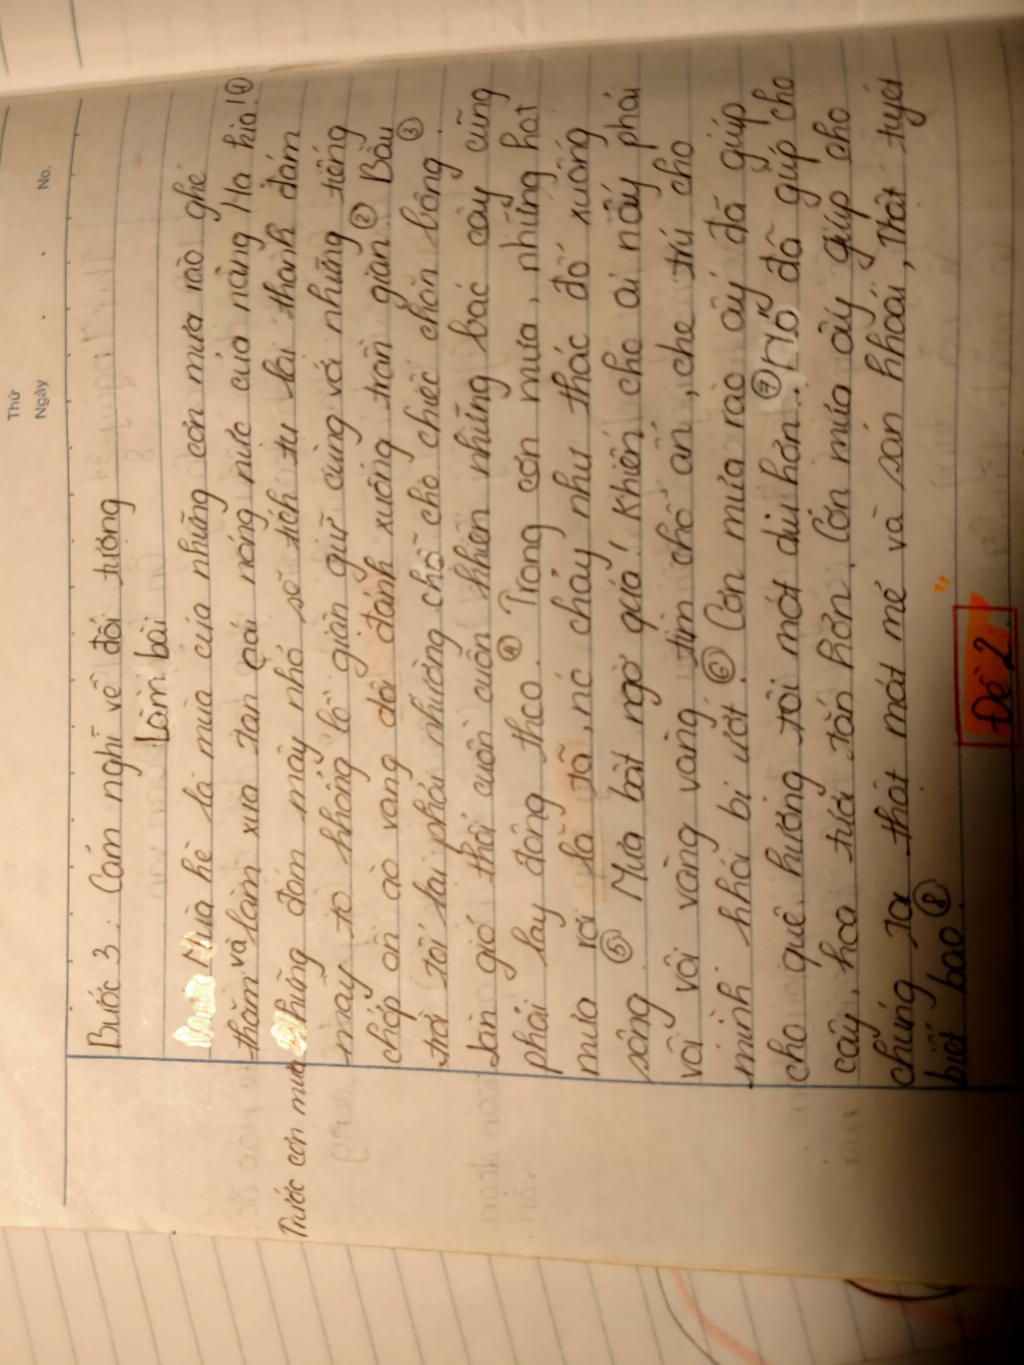 Thứ
Ngày . . No.
Bước 3 : Cảm nghĩ về đối tượng
Làm bài
Mùa hè là mùa của những cơn mưa rào ghé
thăm và làm xua tan cái nóng nực của nàng Hạ kia! ①
Trước cơn mưa những đám mây nhỏ sẽ tích tụ lại thành đám
mây to khổng lồ giận giữ cùng với những tiếng
chớp ồn ào vang dội đánh xuống trần gian ② Bầu
trời tối lại phải nhường chỗ cho chiếc chăn bông ③
Làn gió thổi cuồn cuộn khiến những bác cây cũng
phải lay động theo. ④ Trong cơn mưa, những hạt
mưa rơi lã tã, nó chảy như thác đổ xuống
sông. ⑤ Mưa bất ngờ quá! Khiến cho ai nấy phải
vội vội vàng vàng tìm chỗ ẩn, che trú cho
mình khỏi bị ướt. ⑥ Cơn mưa rào ấy đã giúp
cho quê hương tôi mát dịu hơn. ⑦ Nó đã giúp cho
cây, hoa tươi tắn hơn. Cơn mưa ấy giúp cho
chúng ta thật mát mẻ và sản khoái, Thật tuyệt
biết bao ⑧
Đề 2